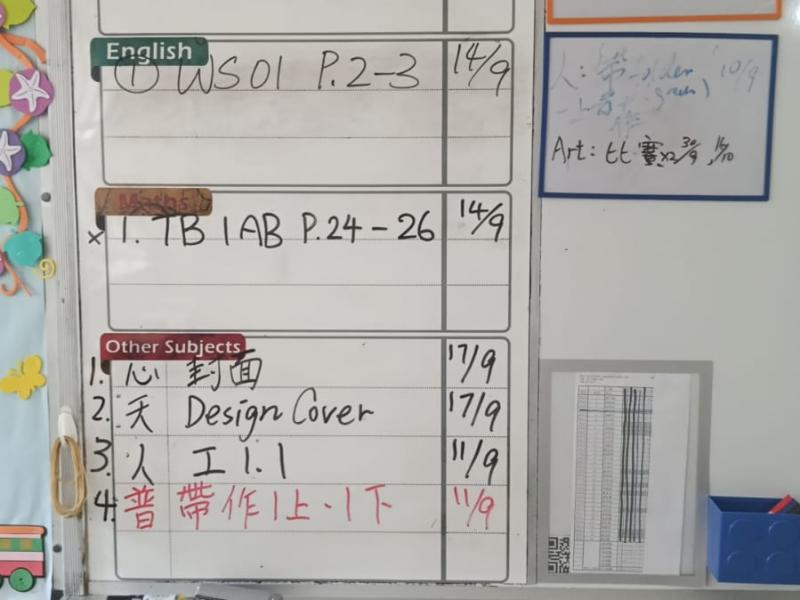 English
① WS01 P.2-3 14/9
Maths
× 1. TB 1AB P.24-26 14/9
Other Subjects
1. 心 封面 17/9
2. 天 Design Cover 17/9
3. 人 工1.1 11/9
4. 普 帶作1上、1下 11/9
人: 帶 folder 10/9
(green)
Art: 比賽x2 30/9,